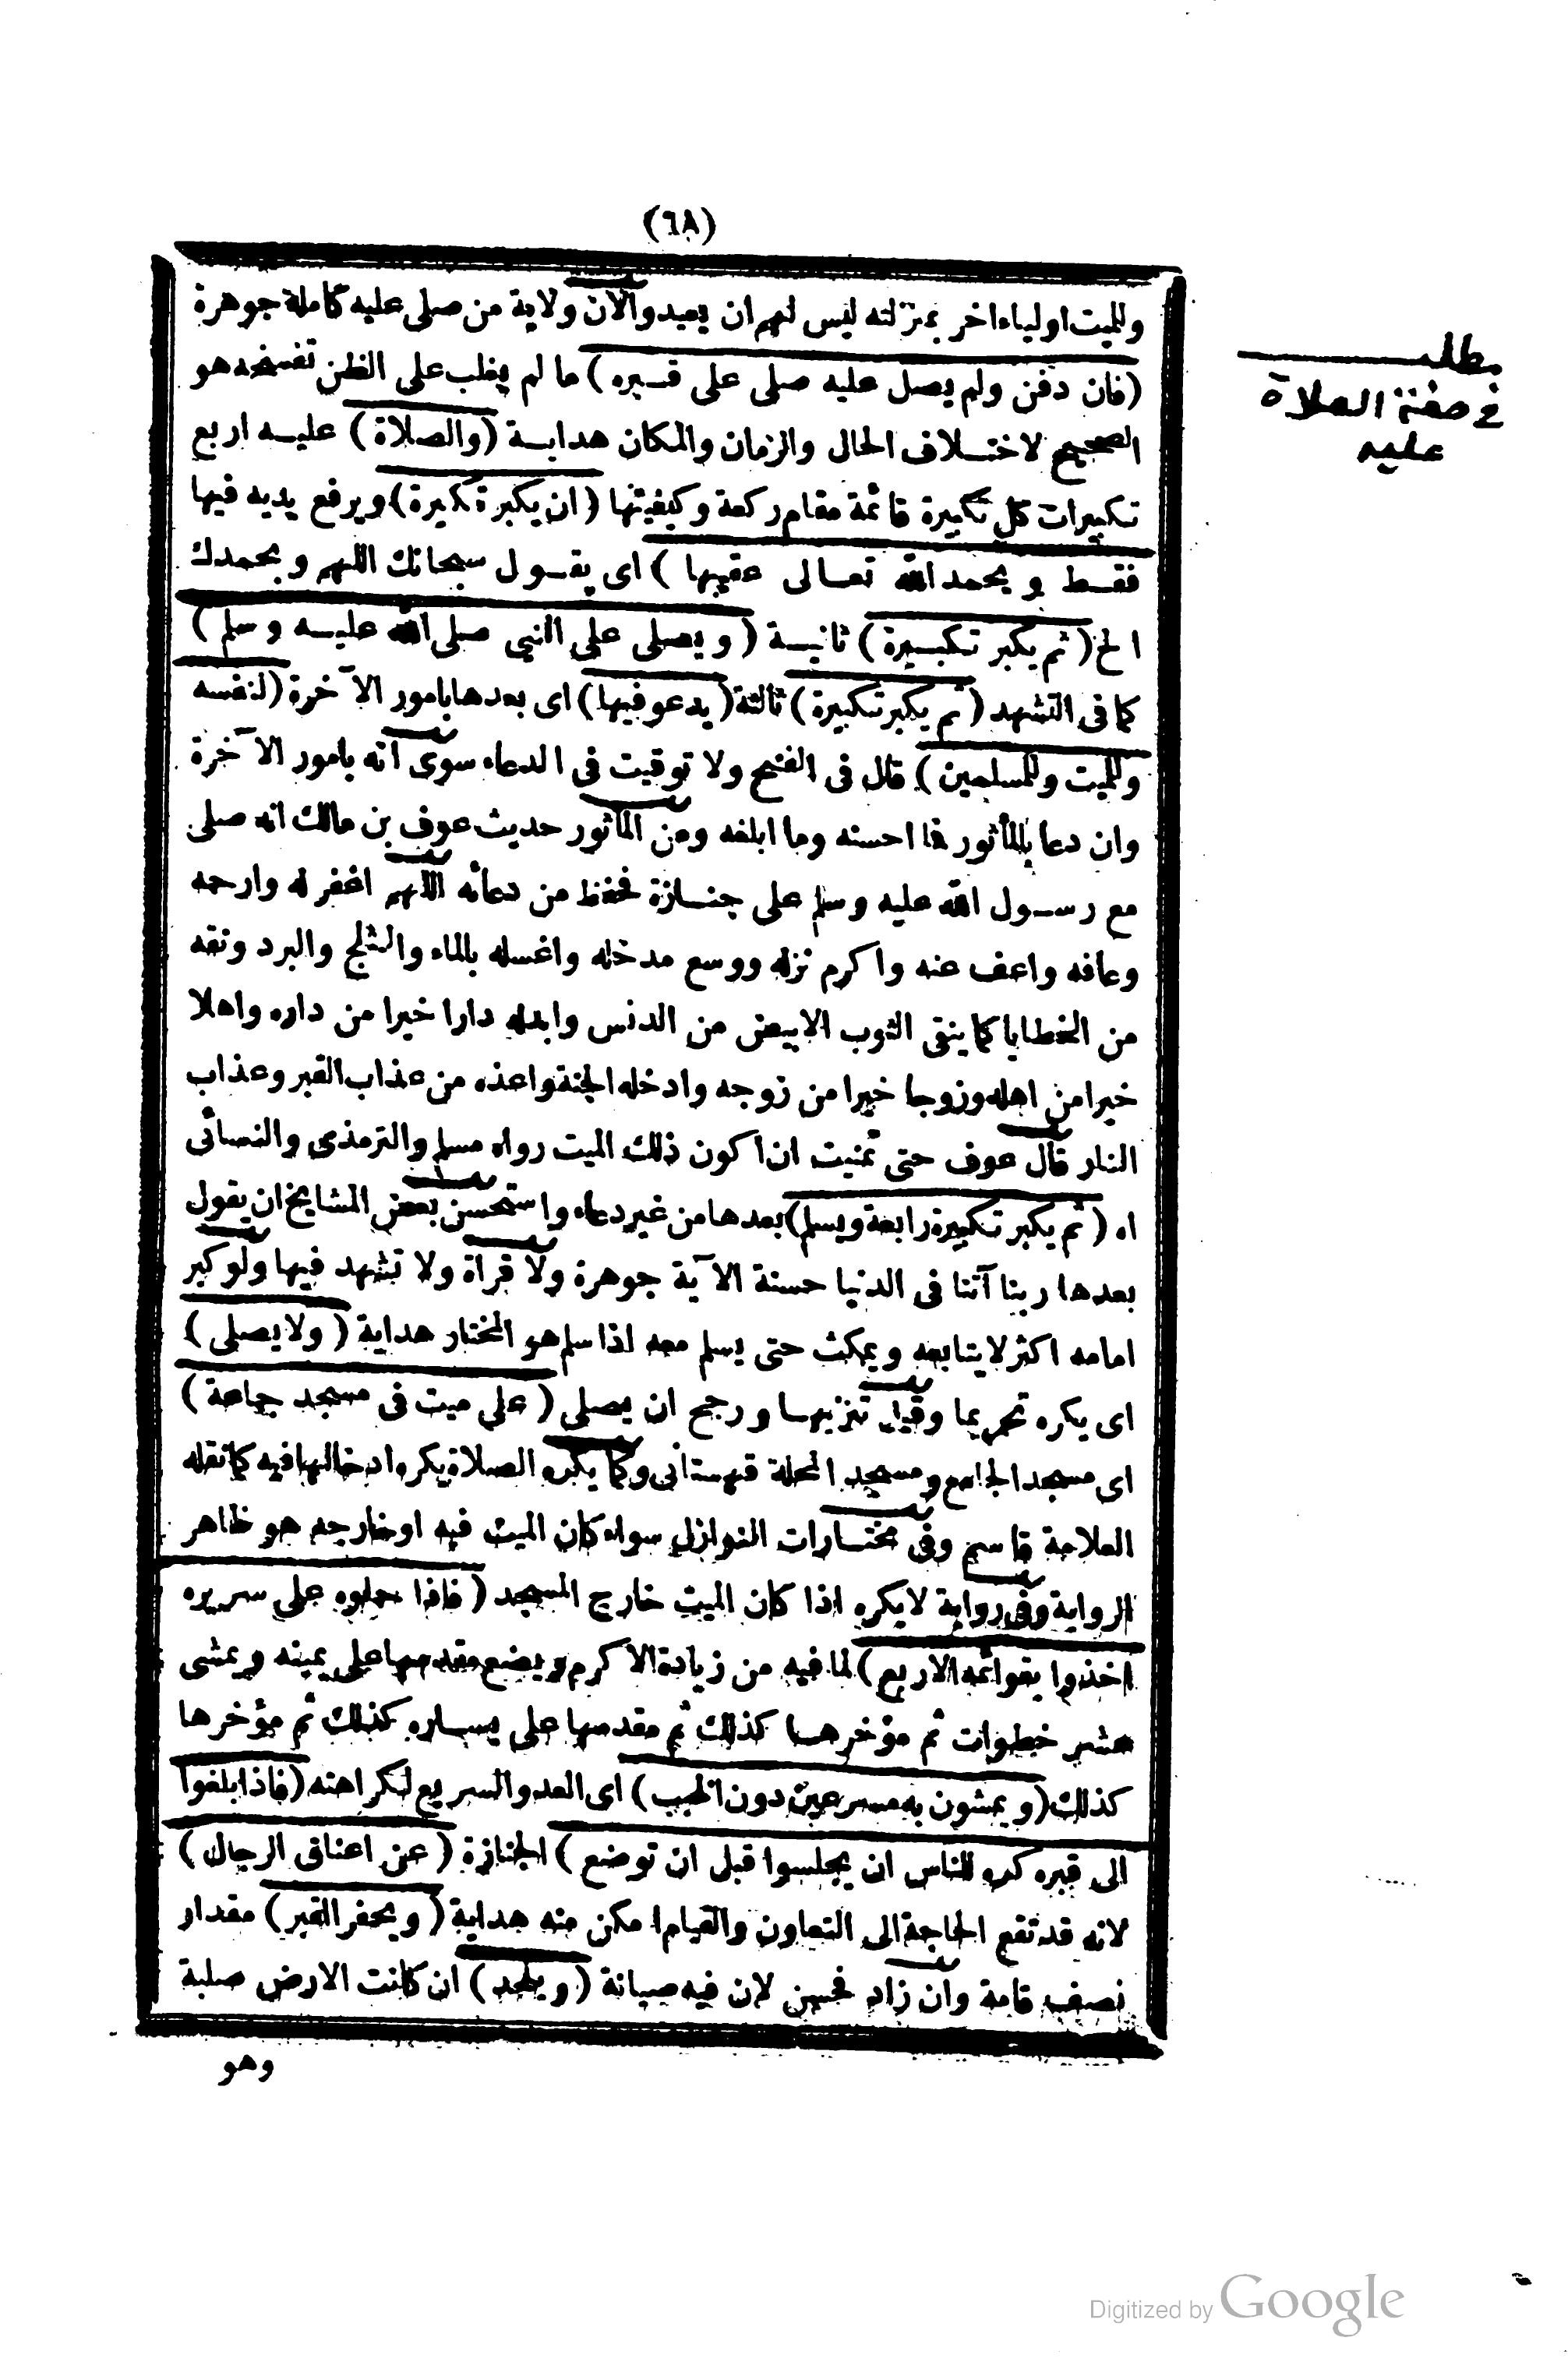 (٦٨)
وللميت اولياء اخر بمنزلته ليس لهم ان يعيدوا لان ولاية من صلى عليه كاملة جوهرة
(فان دفن ولم يصل عليه صلى على قبره) ما لم يغلب على الظن تفسخه هو
الصحيح لاختلاف الحال والزمان والمكان هداية (والصلاة) عليه اربع
تكبيرات كل تكبيرة قائمة مقام ركعة وكيفيتها (ان يكبر تكبيرة) ويرفع يديه فيها
فقط ويحمد الله تعالى عقيبها) اى يقول سبحانك اللهم وبحمدك
الخ (ثم يكبر تكبيرة) ثانية (ويصلى على النبى صلى الله عليه وسلم)
كما فى التشهد (ثم يكبر تكبيرة) ثالثة (يدعو فيها) اى بعدها بامور الآخرة (لنفسه
وللميت وللمسلمين) قال فى الفتح ولا توقيت فى الدعاء سوى انه بامور الآخرة
وان دعا بالمأثور فما احسنه وما ابلغه ومن المأثور حديث عوف بن مالك انه صلى
مع رسول الله عليه وسلم على جنازة فحفظ من دعائه اللهم اغفر له وارحمه
وعافه واعف عنه واكرم نزله ووسع مدخله واغسله بالماء والثلج والبرد ونقه
من الخطايا كما ينقى الثوب الابيض من الدنس وابدله دارا خيرا من داره واهلا
خيرا من اهله وزوجا خيرا من زوجه وادخله الجنة واعذه من عذاب القبر وعذاب
النار قال عوف حتى تمنيت ان اكون ذلك الميت رواه مسلم والترمذى والنسائى
اه (ثم يكبر تكبيرة رابعة ويسلم) بعدها من غير دعاء واستحسن بعض المشايخ ان يقول
بعدها ربنا آتنا فى الدنيا حسنة الآية جوهرة ولا قراة ولا تشهد فيها ولو كبر
امامه اكثر لا يتابعه ويمكث حتى يسلم معه اذا سلم هو المختار هداية (ولا يصلى)
اى يكره تحريما وقيل تنزيها ورجح ان يصلى (على ميت فى مسجد جماعة)
اى مسجد الجامع ومسجد المحلة قهستانى وكما يكره الصلاة يكره ادخالها فيه كما نقله
العلامة قاسم وفى مختارات النوازل سواء كان الميت فيه او خارجه هو ظاهر
الرواية وفى رواية لا يكره اذا كان الميت خارج المسجد (فاذا حملوه على سريره
اخذوا بقوائمه الاربع) لما فيه من زيادة الاكرم ويضع مقدمها على يمينه ويمشى
عشر خطوات ثم مؤخرها كذلك ثم مقدمها على يساره كذلك ثم مؤخرها
كذلك (ويمشون به مسرعين دون الخبب) اى العدو السريع لكراهته (فاذا بلغوا
الى قبره كره للناس ان يجلسوا قبل ان توضع) الجنازة (عن اعناق الرجال)
لانه قد تقع الحاجة الى التعاون والقيام امكن منه هداية (ويحفر القبر) مقدار
نصف قامة وان زاد فحسن لان فيه صيانة (ويلحد) ان كانت الارض صلبة
وهو
مطلب
فى صفة الصلاة
عليه
Digitized by Google